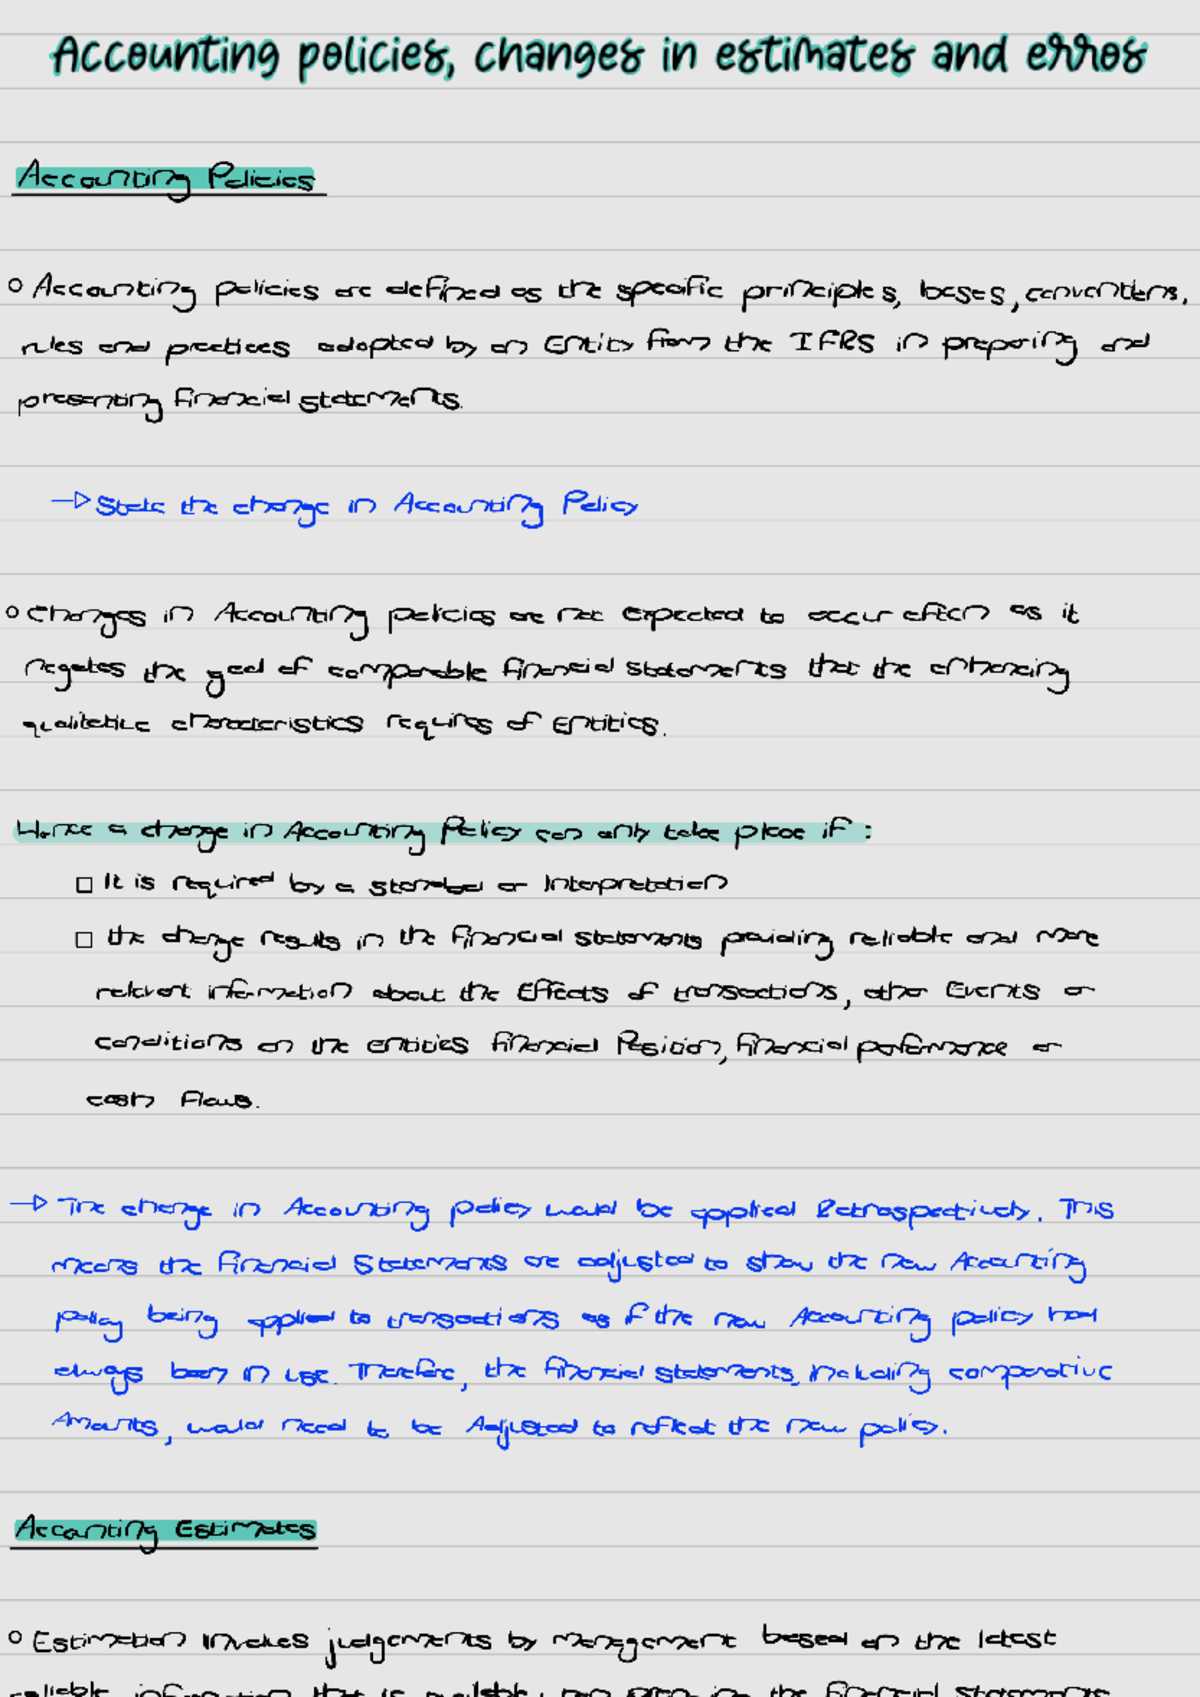 Accounting policies, changes in estimates and erros
Accounting Policies
Accounting policies are defined as the specific principles, bases, conventions,
rules and practices adopted by an Entity from the IFRS in preparing and
presenting financial statements.
→ State the change in Accounting Policy
Changes in Accounting policies are not expected to occur often as it
negates the goal of comparable financial statements that the enhancing
qualitative characteristics requires of Entities.
Hence a change in Accounting Policy can only take place if :
It is required by a standard or Interpretation
the change results in the financial statements providing reliable and more
relevant information about the Effects of transactions, other Events or
conditions on the entities financial Position, financial performance or
cash flows.
→ The change in Accounting policy would be applied Retrospectively. This
means the financial Statements are adjusted to show the new Accounting
policy being applied to transactions as if the new Accounting policy had
always been in use. Therefore, the financial statements, including comparative
Amounts, would need to be Adjusted to reflect the new policy.
Accounting Estimates
Estimation Involves judgements by management based on the latest
reliable information that is available, when preparing the financial statements